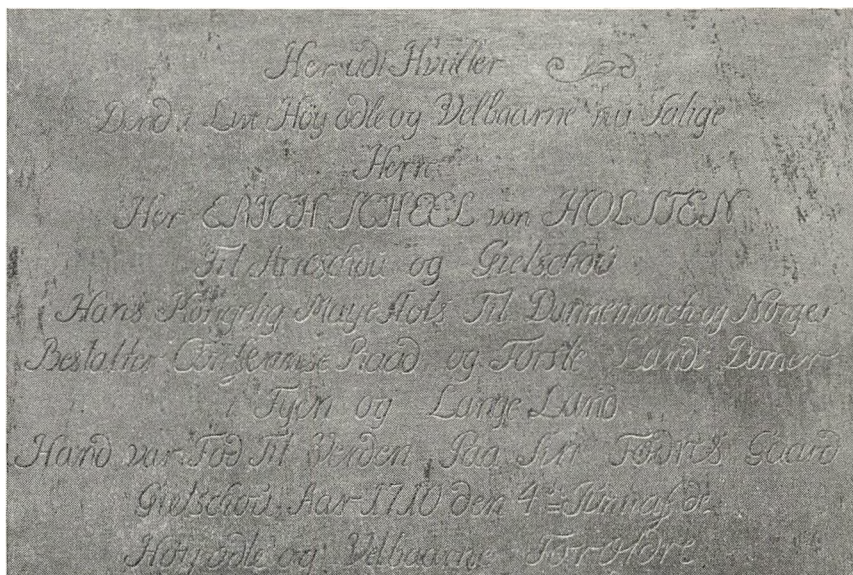 Her udi Hviiler
Dend i Live Höy ædle og Velbaarne nu Salige
Herre
Her ERICH SCHEEL von HOLSTEN
Til Arreschou og Gielschou
Hans Kongelig Mayestæts Til Dannemarch og Norges
Bestalter Raad og Förste Lands Domer
i Fyen og Lange Land
Hand var Föd Til Verden Paa Sin Fædres Gaard
Gielschou Aar 1710 den 4 de
Höyædle og Velbaarne Forældre